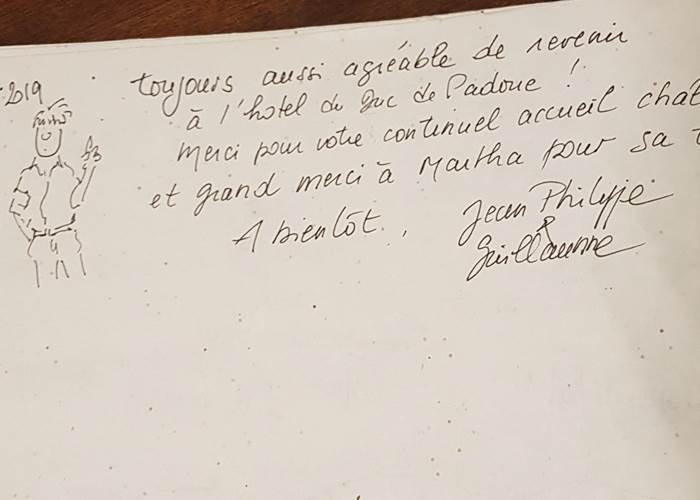 2019
toujours aussi agréable de revenir
à l'hotel du Duc de Padoue !
Merci pour votre continuel accueil
et grand merci à Martha pour sa
A bientôt.
Jean Philippe
&
Guillaume